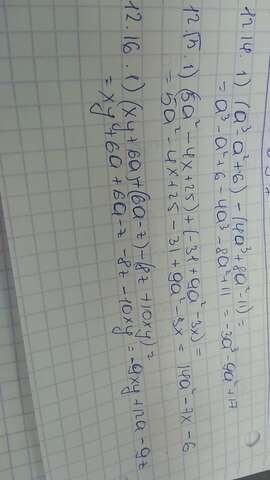 12.14. 1) (a³-a²+6)-(4a³+8a²-11)=
=a³-a²+6-4a³-8a²+11=-3a³-9a²+17
12.15. 1) (5a²-4x+25)+(-31+9a²-3x)=
=5a²-4x+25-31+9a²-3x=14a²-7x-6
12.16. 1) (xy+6a)+(6a-z)-(8z+10xy)=
=xy+6a+6a-z-8z-10xy=-9xy+12a-9z